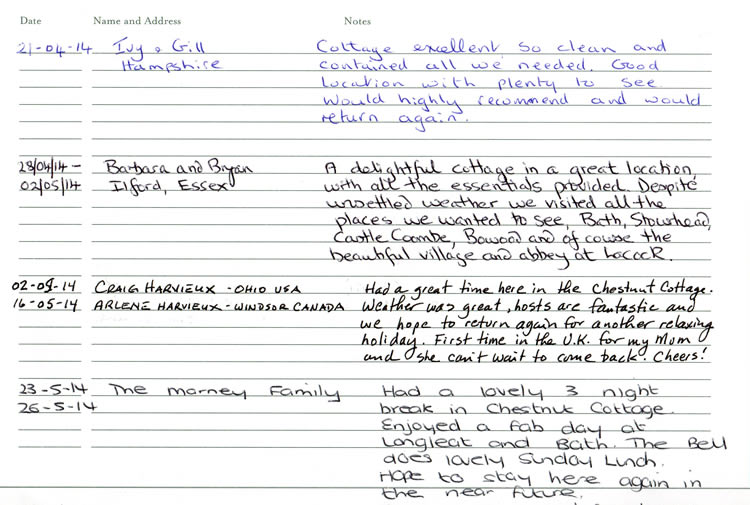 Date Name and Address Notes
21-04-14 Ivy & Gill Cottage excellent so clean and
Hampshire contained all we needed. Good
location with plenty to see
Would highly recommend and would
return again.
28/04/14 - Barbara and Bryan A delightful cottage in a great location,
02/05/14 Ilford, Essex with all the essentials provided. Despite
unsettled weather we visited all the
places we wanted to see, Bath, Stourhead,
Castle Coombe, Bowood and of course the
beautiful village and abbey at Lacock.
02-05-14 CRAIG HARVIEUX - OHIO USA Had a great time here in the Chestnut Cottage.
16-05-14 ARLENE HARVIEUX - WINDSOR CANADA Weather was great, hosts are fantastic and
we hope to return again for another relaxing
holiday. First time in the U.K. for my Mom
and she can't wait to come back! Cheers!
23-5-14 The Marney Family Had a lovely 3 night
26-5-14 break in Chestnut Cottage.
Enjoyed a fab day at
Longleat and Bath. The Bell
does lovely Sunday Lunch.
Hope to stay here again in
the near future.